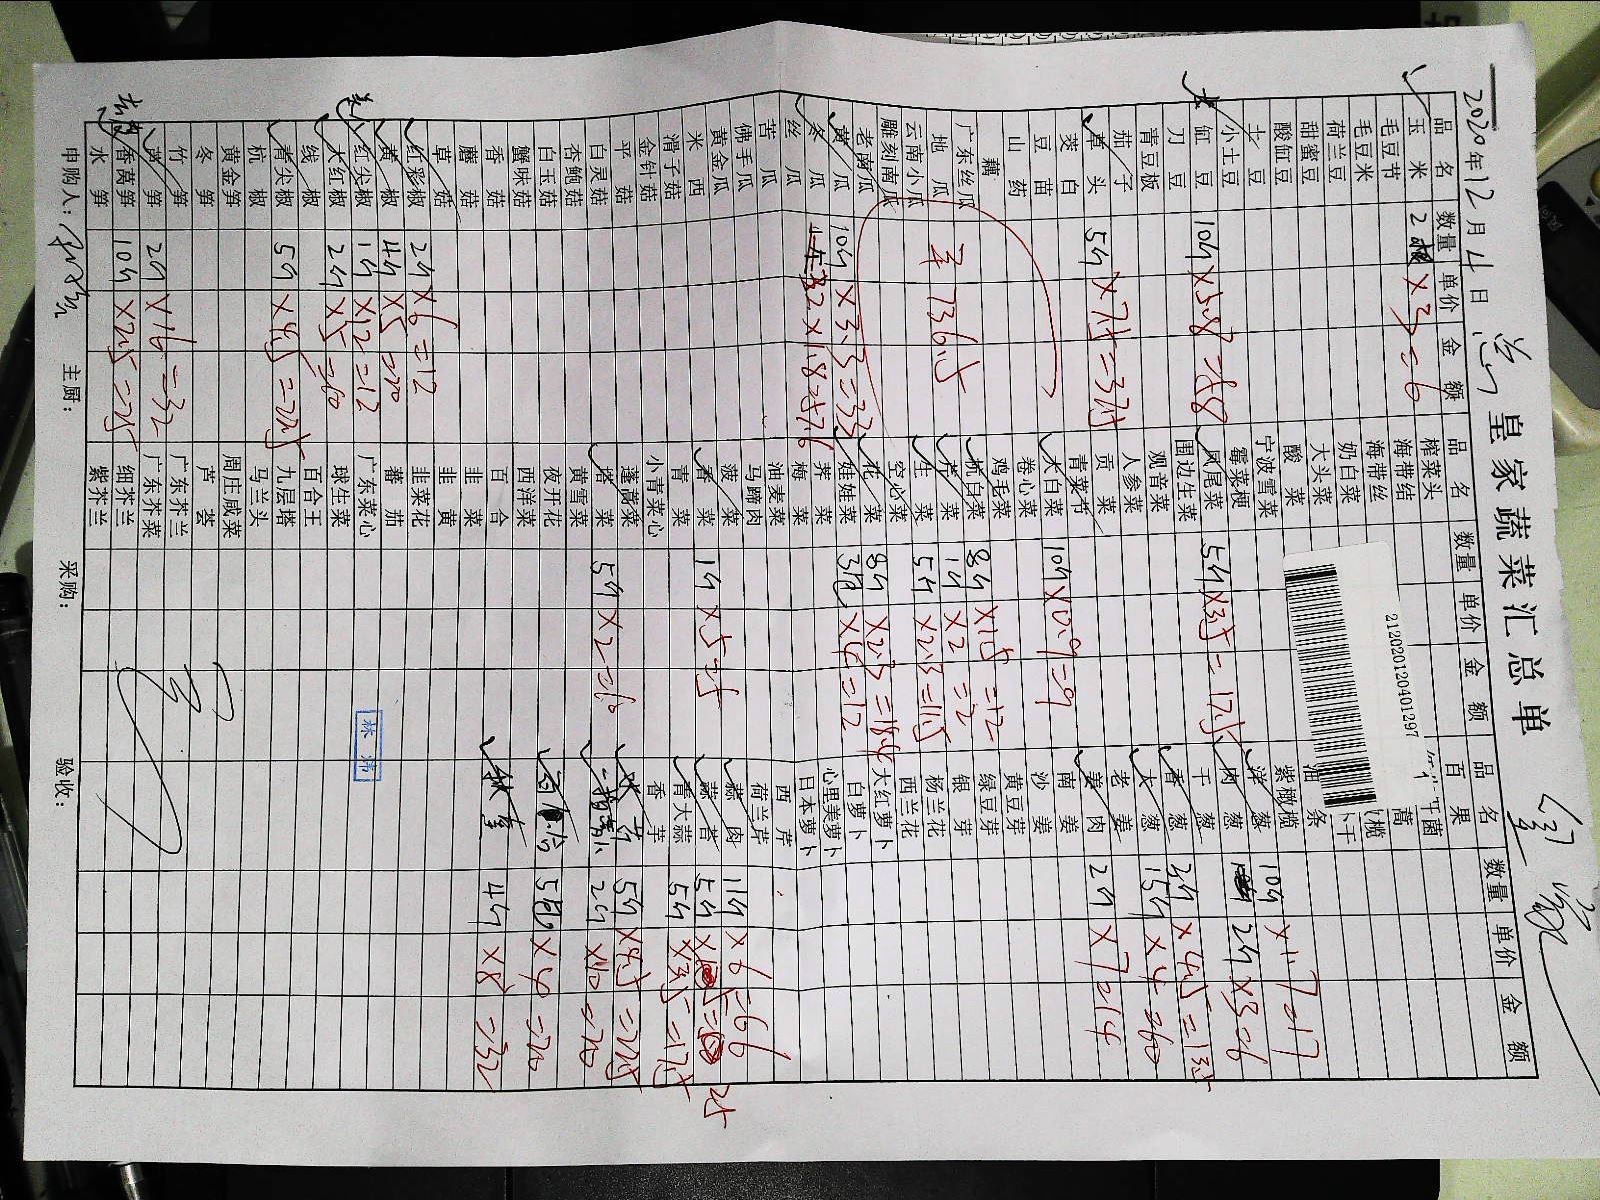 尚皇家蔬菜汇总单
2020年12月4日
212020120401297
品名 数量 单价 金额 品名 数量 单价 金额 品名 数量 单价 金额
百果
玉米 2根 ×3=6
毛豆节
毛豆米
荷兰豆
甜蜜豆
酸缸豆
土豆
小土豆
缸豆 10斤 ×5.8=58
刀豆
青豆板
茄子
草头 5斤 ×7.5=37.5
茭白
豆苗
山药
藕
广东丝瓜
地瓜
云南小瓜
雕刻南瓜
老南瓜
黄瓜 10斤 ×3.3=33
冬瓜 32×1.8=57.6
丝瓜
苦瓜
佛手瓜
黄金瓜
米西
滑子菇
金针菇
平菇
白灵菇
杏鲍菇
白玉菇
蟹味菇
香菇
蘑菇
草菇
红彩椒 2斤 ×6=12
黄椒 4斤 ×5=20
红尖椒 1斤 ×12=12
大红椒 2斤 ×5
线椒
青尖椒 5斤 ×4.5=22.5
杭椒
黄金笋
冬笋
竹笋
莴笋 2斤 ×16=32
香莴笋 10斤 ×2.5=25
水笋
736.5
榨菜头
海带结
海带丝
奶白菜
大头菜
酸菜
宁波雪菜
霉菜梗
凤尾菜 5斤 ×3.5=17.5
围边生菜
观音菜
人参菜
贡菜
青菜节
大白菜 10斤 ×0.9=9
卷心菜
鸡毛菜
杭白菜 8斤 ×1.5=12
芹菜 1斤 ×2=2
生菜 5斤 ×2.3=11.5
空心菜
花菜 8斤 ×2.3=18.4
娃娃菜 3包 ×4=12
荠菜
梅菜
油麦菜
马蹄肉
菠菜
香菜 1斤 ×5=5
青菜
小青菜心
蓬蒿菜
塔菜 5斤 ×2=10
黄雪菜
夜开花
西洋菜
百合
韭菜
韭黄
韭菜花
蕃茄
广东菜心
球生菜
百合王
九层塔
马兰头
芦荟
周庄咸菜
广东芥兰
广东芥菜
细芥兰
紫芥兰
油条
紫橄榄
洋葱 10斤 ×1.7=17
肉葱 2斤 ×3=6
干葱
香葱 3斤 ×4.5=13.5
大葱 15斤 ×4=60
老姜
姜肉 2斤 ×7=14
南姜
沙姜
黄豆芽
绿豆芽
银芽
杨兰花
西兰花
大红萝卜
白萝卜
心里美萝卜
日本萝卜
西芹
荷兰芹
蒜肉 11斤 ×6=66
蒜苔 5斤 25
青大蒜 5斤 ×3.5=17.5
香芋
5斤 ×4.5=22.5
2斤 ×10=20
5包 ×4=20
4斤 ×8=32
林沛
申购人: 主厨: 采购: 验收: